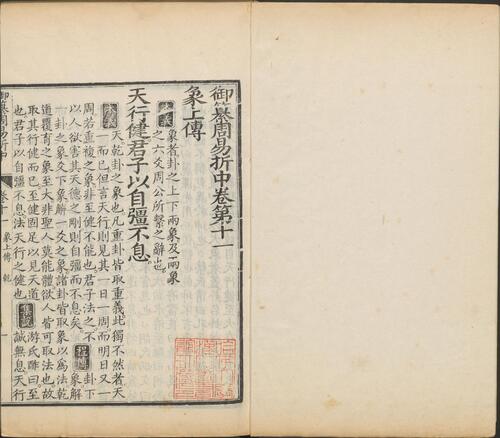 御纂周易折中卷第十一
象上傳
本義
象者卦之上下兩象及兩象
之六爻周公所繫之辭也
天行健君子以自彊不息
本義
天乾卦之象也凡重卦皆取重義此獨不然者天
一而已但言天行則見其一日一周而明日又一
周若重複之象非至健不能也君子法之不
以人欲害其天德之剛則自彊而不息矣
程傳
卦下
象解
一卦之象爻下象解一爻之象諸卦皆取象以為法乾
道覆育之象至大非聖人莫能體欲人皆可取法也故
取其行健而已至健固足以見天道
也君子以自彊不息法天行之健也
集說
游氏酢曰至
誠無息天行
御纂周易折中
卷十一 象上傳 乾
一